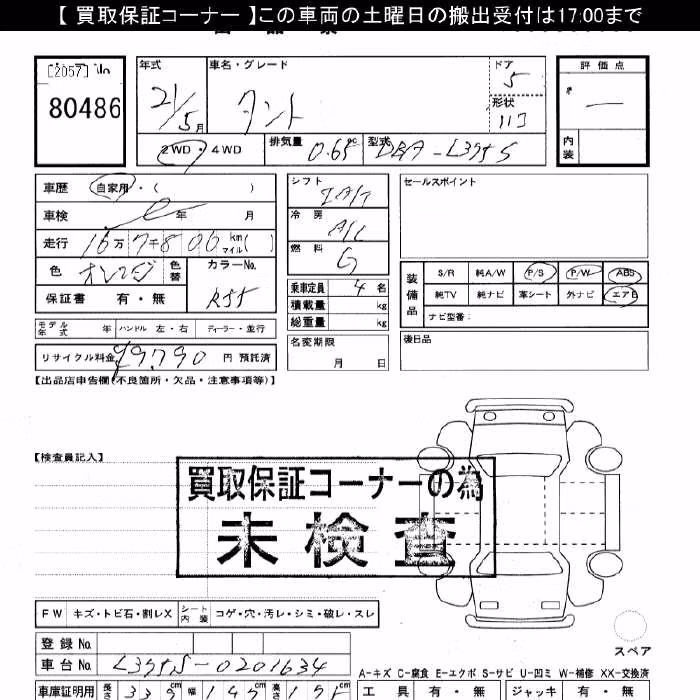 【 買取保証コーナー 】この車両の土曜日の搬出受付は17:00まで
[2057] No
80486
年式
21/5月
車名・グレード
タント
ドア
5
形状
評価点
—
内装
2WD・4WD
排気量 0.65 cc
型式 DBA-L375S
車歴 自家用・( )
車検 年 月
走行 16万7千806 km マイル( )
色 オレンジ 色替
カラーNo. R55
保証書 有・無
シフト IAT
冷房 A/C
燃料 G
乗車定員 4 名
積載量 kg
総重量 kg
セールスポイント
装備品
S/R 純A/W P/S P/W ABS
純TV 純ナビ 革シート 外ナビ エアB
ナビ型番:
モデル年式 年 ハンドル 左・右 ディーラー・並行
リサイクル料金 ¥9,790 円 預託済
名変期限
月 日
後日品
【出品店申告欄(不良箇所・欠品・注意事項等)】
【検査員記入】
買取保証コーナーの為
未検査
FW キズ・トビ石・割レX シート内装 コゲ・穴・汚レ・シミ・破レ・スレ
スペア
登録 No.
車台 No. L375S-0201634
A-キズ C-腐食 E-エクボ S-サビ U-凹ミ W-補修 XX-交換済
車庫証明用 長さ 339 cm 幅 147 cm 高さ cm
工具 有・無 ジャッキ 有・無